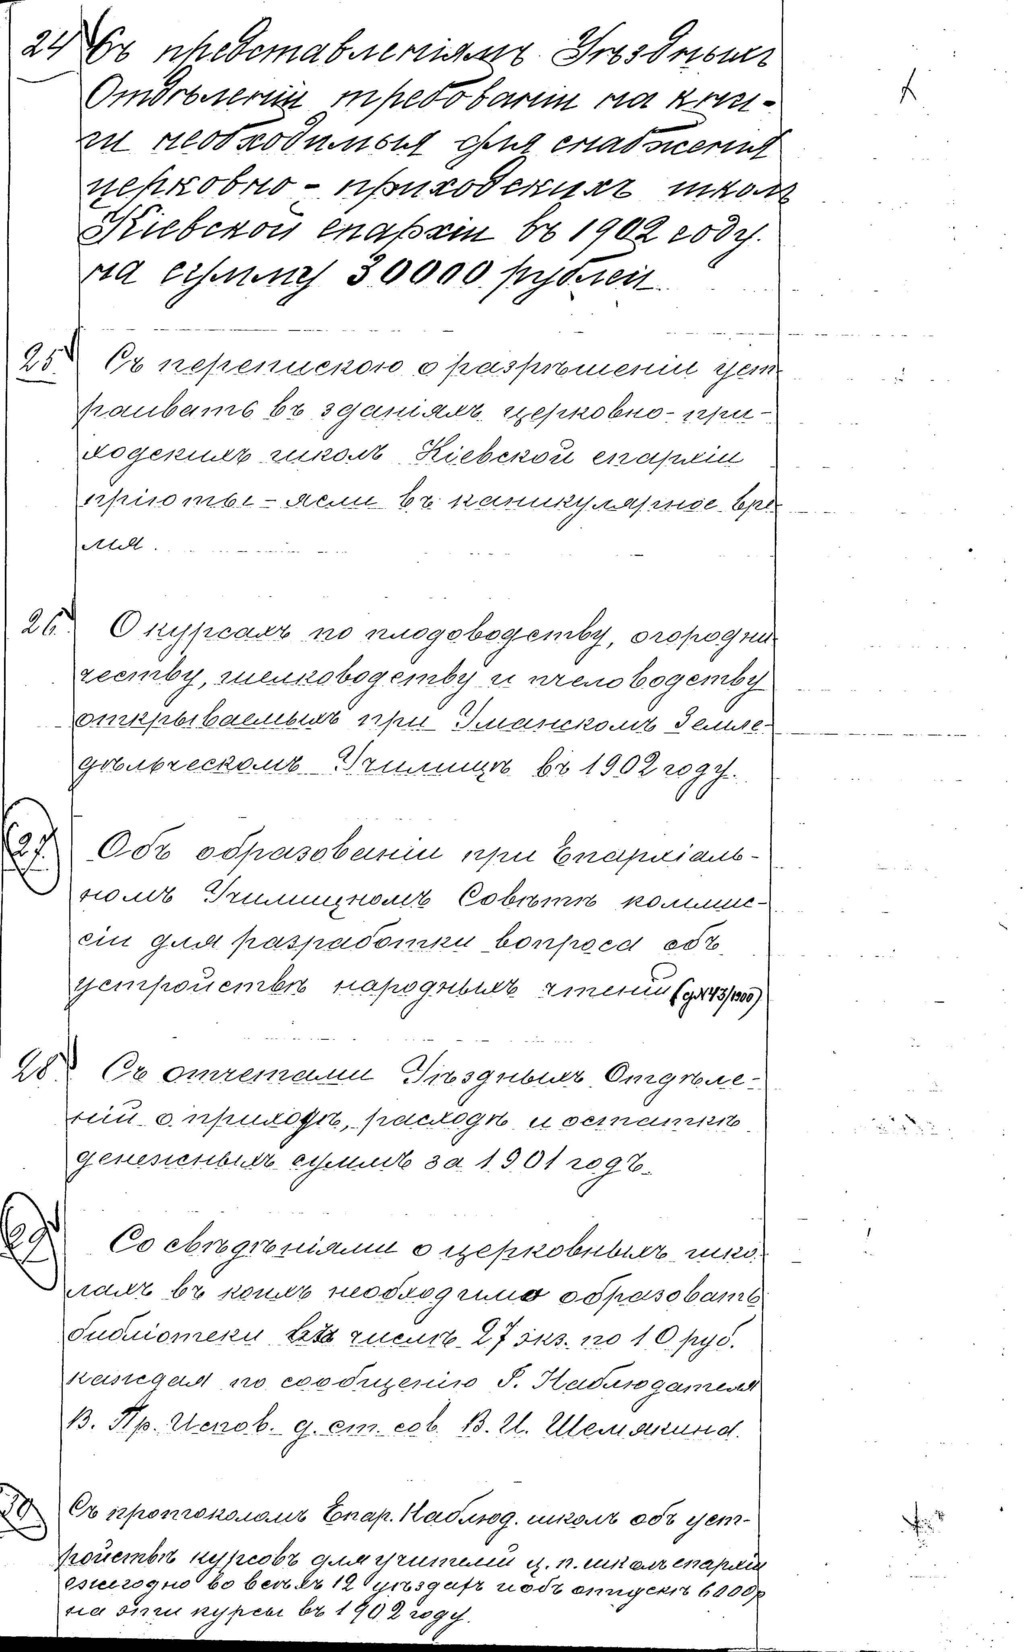 24 Съ представленіямъ Уѣздныхъ
Отдѣленіи требованіи на кни-
ги необходимыя для снабженія
церковно-приходскихъ школъ
Кіевской епархіи въ 1902 году.
на сумму 30000 рублей
25. Съ перепискою о разрѣшеніи уст-
раивать въ зданіяхъ церковно-при-
ходскихъ школъ Кіевской епархіи
пріюты-ясли въ каникулярное вре-
мя.
26. О курсахъ по плодоводству, огородни
честву, шелководству и пчеловодству
открываемыхъ при Уманскомъ Земле-
дѣльческомъ Училищѣ въ 1902 году.
27. Объ образованіи при Епархіаль-
номъ Училищномъ Совѣтѣ коммис-
сіи для разработки вопроса объ
устройствѣ народныхъ чтеній (д№43/1900)
28. Съ отчетами Уѣздныхъ Отдѣле-
ній о приходѣ, расходѣ и остаткѣ
денежныхъ суммъ за 1901 годъ.
29 Со свѣдѣніями о церковныхъ шко
лахъ въ коихъ необходимо образовать
библіотеки въ числѣ 27 экз. по 10 руб.
каждая по сообщенію Г. Наблюдателя
В. Пр. Испов. д. ст. сов. В. И. Шемякина.
30 Съ протоколомъ Епар. Наблюд. школъ объ уст-
ройствѣ курсовъ для учителей ц. п. школъ епархіи
ежегодно во всѣхъ 12 уѣздахъ и объ отпускѣ 6000р
на эти курсы въ 1902 году.